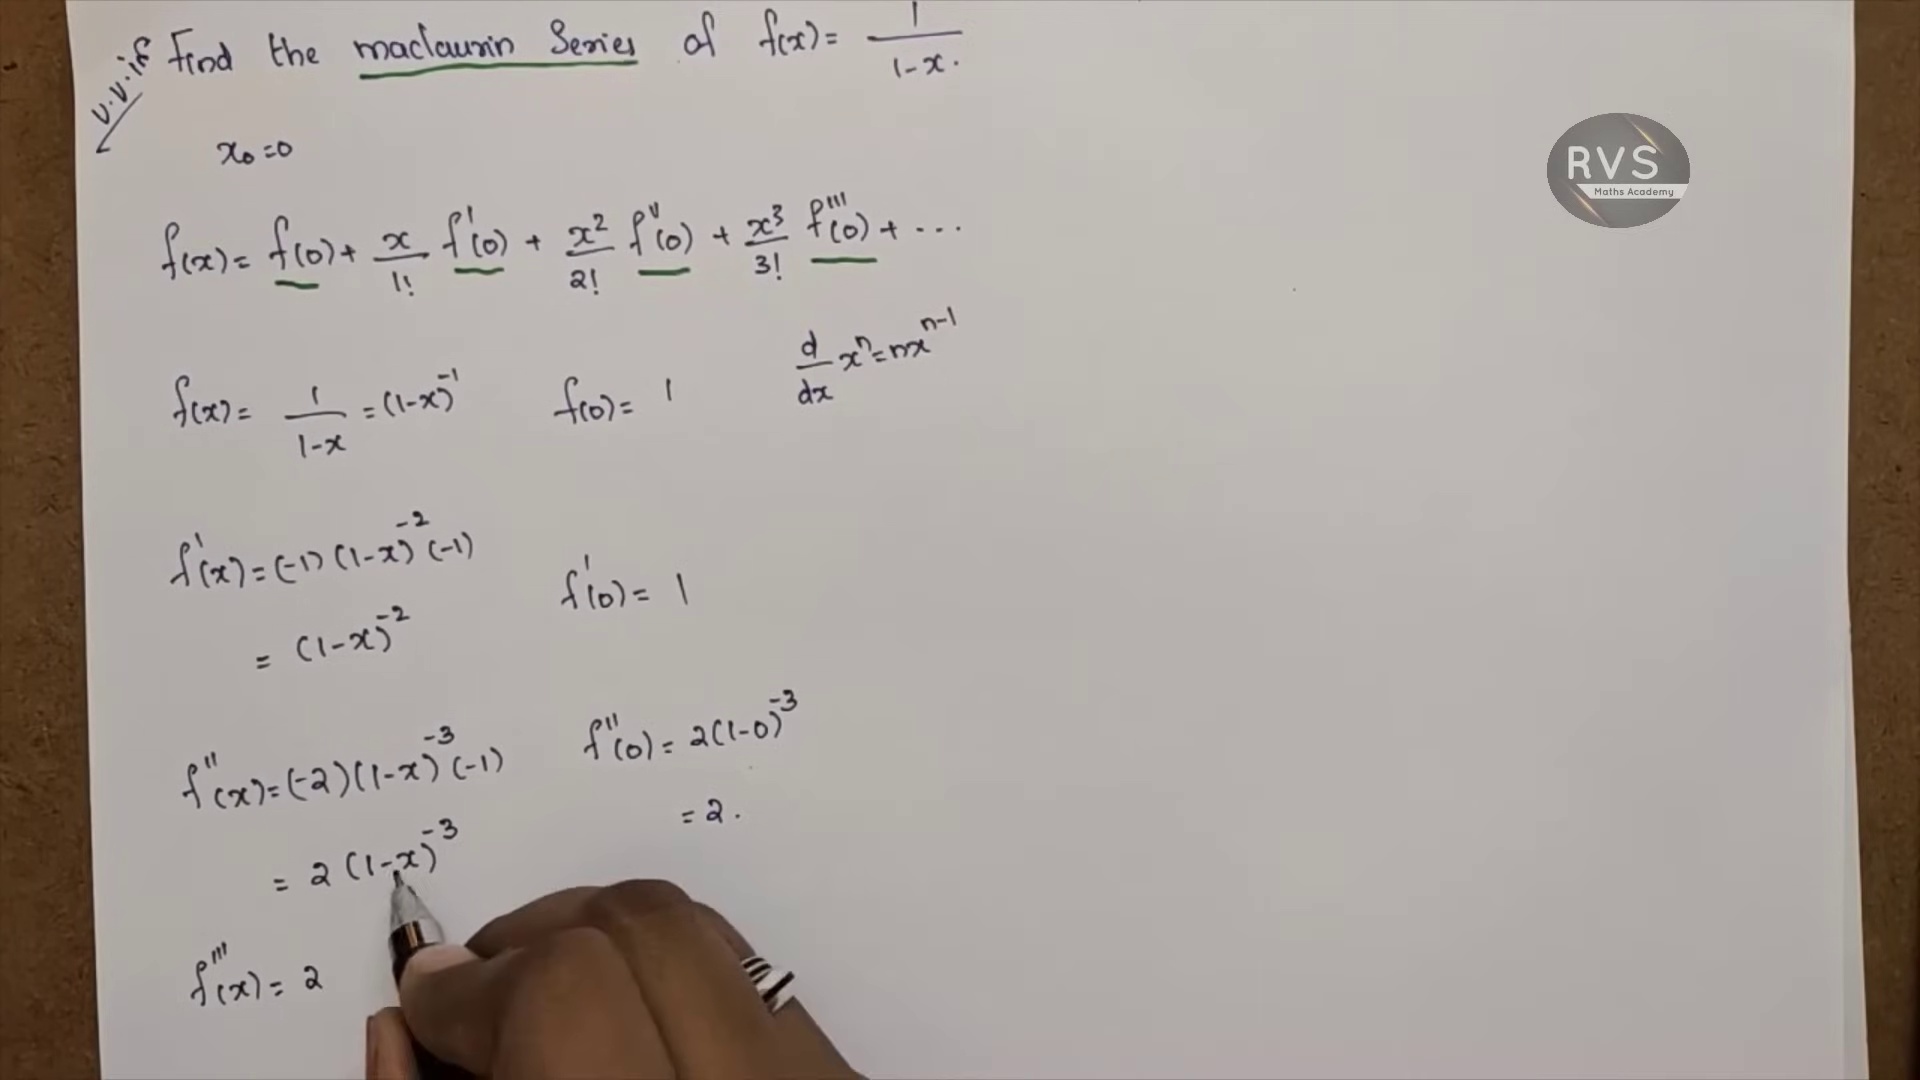 v.v.if Find the maclaurin Series of f(x)= 1/1-x.
RVS
Maths Academy
x₀=0
f(x)= f(0)+ x/1! f'(0) + x²/2! f''(0) + x³/3! f'''(0) + ...
d/dx xⁿ=nxⁿ⁻¹
f(x)= 1/1-x =(1-x)⁻¹ f(0)= 1
f'(x)=(-1)(1-x)⁻²(-1) f'(0)= 1
= (1-x)⁻²
f''(x)=(-2)(1-x)⁻³(-1) f''(0)= 2(1-0)⁻³
= 2(1-x)⁻³ = 2.
f'''(x)= 2